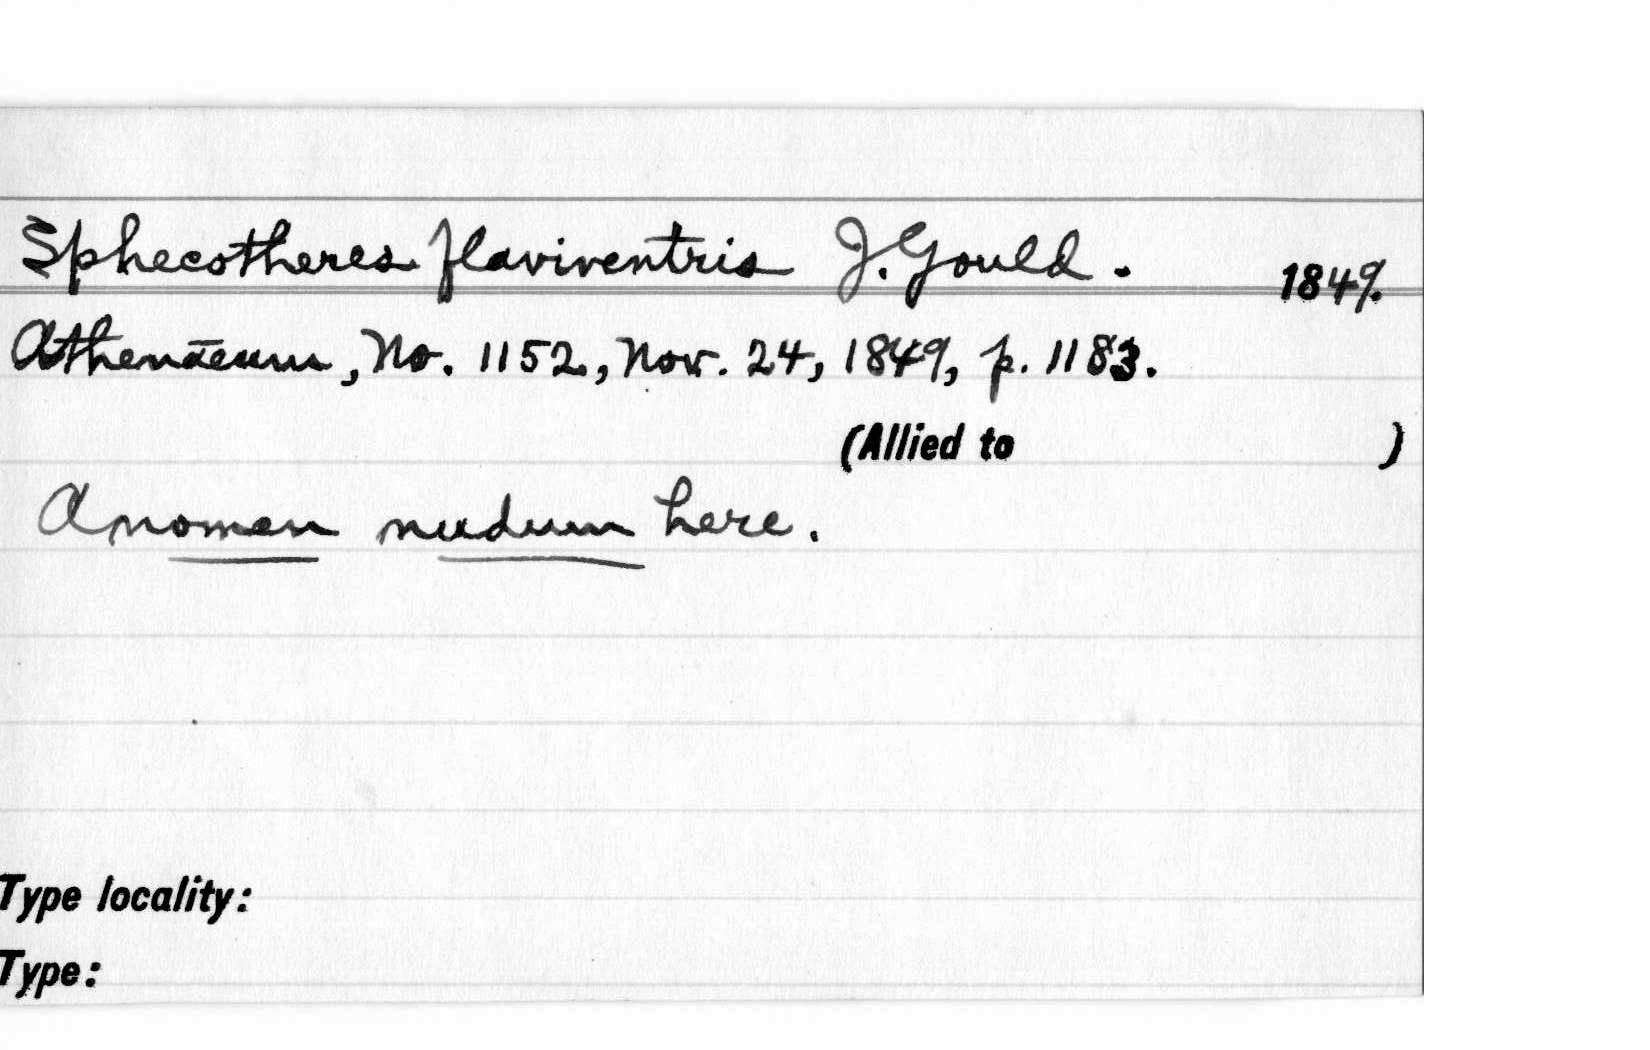 Sphecotheres flaviventris J. Gould. 1849.
Athenaeum, No. 1152, Nov. 24, 1849, p. 1183.
(Allied to )
A nomen nudum here.
Type locality:
Type: